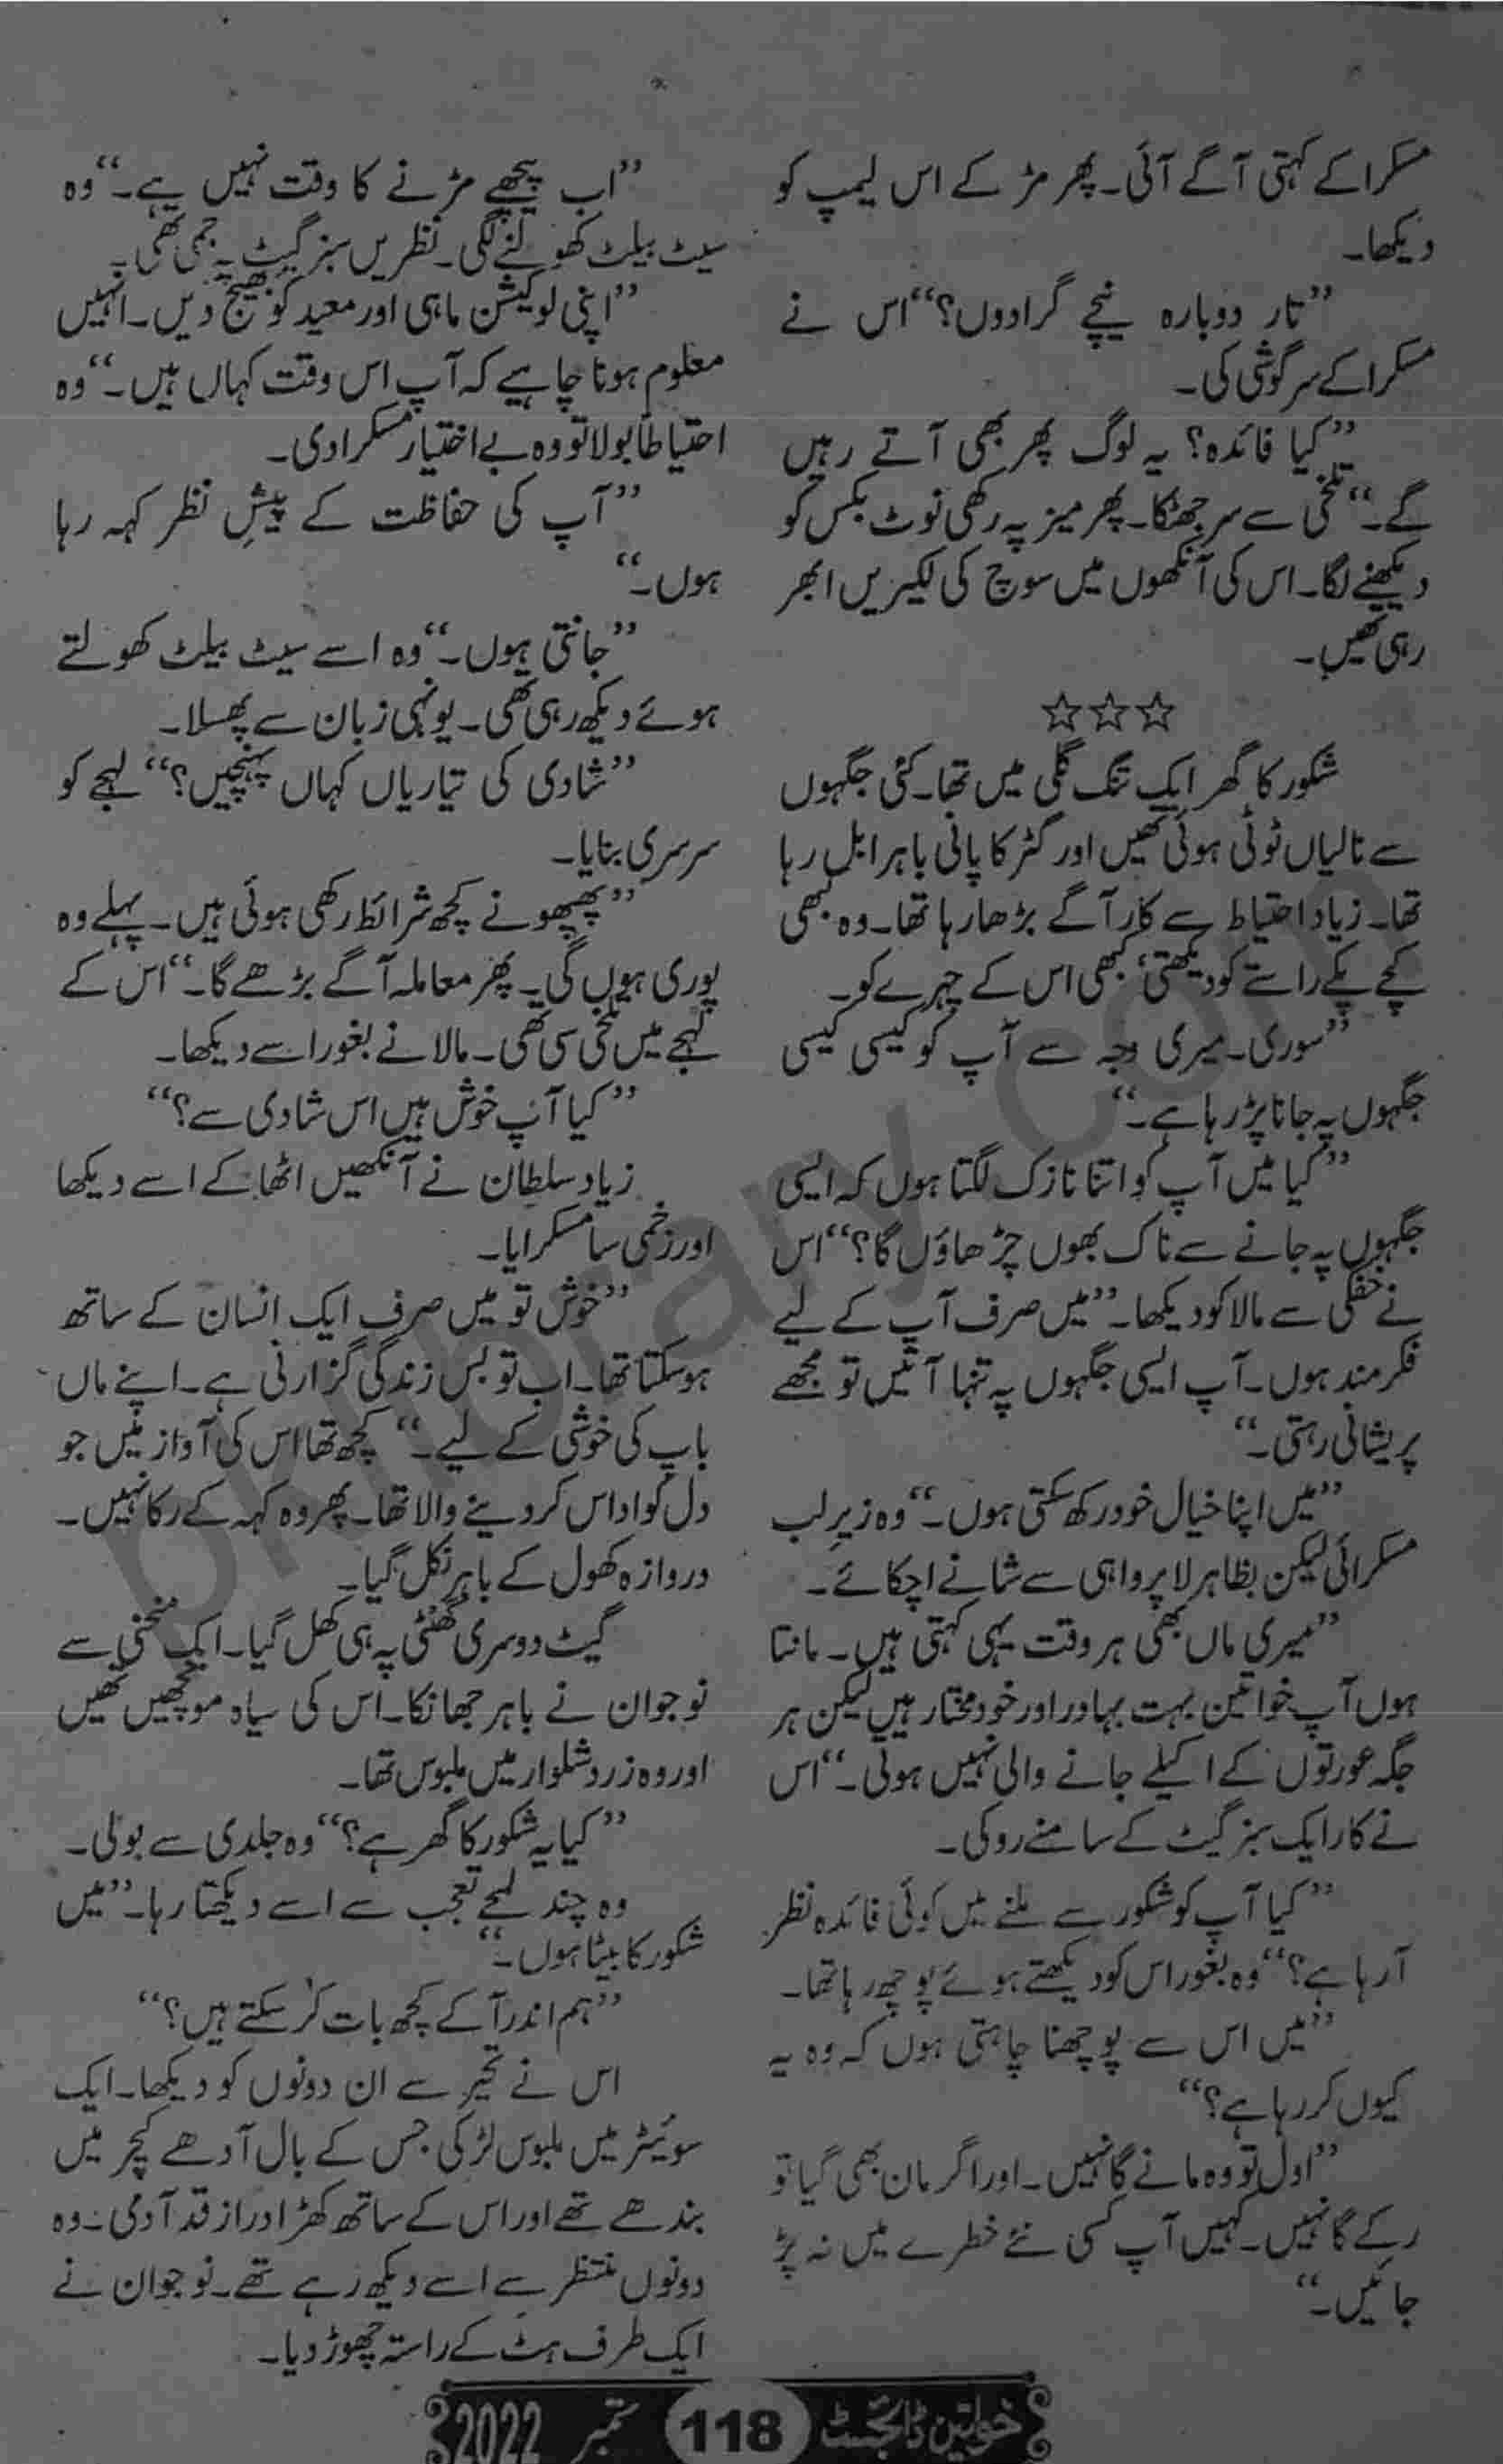 مسکرا کے کہتی آگے آئی۔ پھر مڑ کے اس لیمپ کو
دیکھا۔
”تار دوبارہ نیچے گرا دوں؟“ اس نے
مسکرا کے سرگوشی کی۔
”کیا فائدہ؟ یہ لوگ پھر بھی آتے رہیں
گے۔“ تلخی سے سر جھٹکا۔ پھر میز پہ رکھی نوٹ بکس کو
دیکھنے لگا۔ اس کی آنکھوں میں سوچ کی لکیریں ابھر
رہی تھیں۔
☆☆☆
شکور کا گھر ایک تنگ گلی میں تھا۔ کئی جگہوں
سے نالیاں ٹوٹی ہوئی تھیں اور گٹر کا پانی باہر ابل رہا
تھا۔ زیاد احتیاط سے کار آگے بڑھا رہا تھا۔ وہ کبھی
کچے پکے راستے کو دیکھتی، کبھی اس کے چہرے کو۔
”سوری۔ میری وجہ سے آپ کو کیسی کیسی
جگہوں پہ جانا پڑ رہا ہے۔“
”کیا میں آپ کو اتنا نازک لگتا ہوں کہ ایسی
جگہوں پہ جانے سے ناک بھوں چڑھاؤں گا؟“ اس
نے خفگی سے مالا کو دیکھا۔ ”میں صرف آپ کے لیے
فکر مند ہوں۔ آپ ایسی جگہوں پہ تنہا آتیں تو مجھے
پریشانی رہتی۔“
”میں اپنا خیال خود رکھ سکتی ہوں۔“ وہ زیرِ لب
مسکرائی لیکن بظاہر لاپرواہی سے شانے اچکائے۔
”میری ماں بھی ہر وقت یہی کہتی ہیں۔ مانتا
ہوں آپ خواتین بہت بہادر اور خود مختار ہیں لیکن ہر
جگہ عورتوں کے اکیلے جانے والی نہیں ہوتی۔“ اس
نے کار ایک سبز گیٹ کے سامنے روکی۔
”کیا آپ کو شکور سے ملنے میں کوئی فائدہ نظر
آ رہا ہے؟“ وہ بغور اس کو دیکھتے ہوئے پوچھ رہا تھا۔
”میں اس سے پوچھنا چاہتی ہوں کہ وہ یہ
کیوں کر رہا ہے؟“
”اول تو وہ مانے گا نہیں۔ اور اگر مان بھی گیا تو
رکے گا نہیں۔ کہیں آپ کسی نئے خطرے میں نہ پڑ
جائیں۔“
”اب پیچھے مڑنے کا وقت نہیں ہے۔“ وہ
سیٹ بیلٹ کھولنے لگی۔ نظریں سبز گیٹ پہ جمی تھی۔
”اپنی لوکیشن ماہی اور معید کو بھیج دیں۔ انہیں
معلوم ہونا چاہیے کہ آپ اس وقت کہاں ہیں۔“ وہ
احتیاطاً بولا تو وہ بے اختیار مسکرا دی۔
”آپ کی حفاظت کے پیشِ نظر کہہ رہا
ہوں۔“
”جانتی ہوں۔“ وہ اسے سیٹ بیلٹ کھولتے
ہوئے دیکھ رہی تھی۔ یونہی زبان سے پھسلا۔
”شادی کی تیاریاں کہاں پہنچیں؟“ لہجے کو
سرسری بنایا۔
”پھپھو نے کچھ شرائط رکھی ہوئی ہیں۔ پہلے وہ
پوری ہوں گی۔ پھر معاملہ آگے بڑھے گا۔“ اس کے
لہجے میں تلخی سی تھی۔ مالا نے بغور اسے دیکھا۔
”کیا آپ خوش ہیں اس شادی سے؟“
زیاد سلطان نے آنکھیں اٹھا کے اسے دیکھا
اور زخمی سا مسکرایا۔
”خوش تو میں صرف ایک انسان کے ساتھ
ہو سکتا تھا۔ اب تو بس زندگی گزارنی ہے۔ اپنے ماں
باپ کی خوشی کے لیے۔“ کچھ تھا اس کی آواز میں جو
دل کو اداس کر دینے والا تھا۔ پھر وہ کہہ کے رکا نہیں۔
دروازہ کھول کے باہر نکل گیا۔
گیٹ دوسری گھنٹی پہ ہی کھل گیا۔ ایک منحنی سے
نوجوان نے باہر جھانکا۔ اس کی سیاہ مونچھیں تھیں
اور وہ زرد شلوار میں ملبوس تھا۔
”کیا یہ شکور کا گھر ہے؟“ وہ جلدی سے بولی۔
وہ چند لمحے تعجب سے اسے دیکھتا رہا۔ ”میں
شکور کا بیٹا ہوں۔“
”ہم اندر آ کے کچھ بات کر سکتے ہیں؟“
اس نے تحیر سے ان دونوں کو دیکھا۔ ایک
سوئیٹر میں ملبوس لڑکی جس کے بال آدھے کیچر میں
بندھے تھے اور اس کے ساتھ کھڑا دراز قد آدمی۔ وہ
دونوں منتظر سے اسے دیکھ رہے تھے۔ نوجوان نے
ایک طرف ہٹ کے راستہ چھوڑ دیا۔
خواتین ڈائجسٹ 118 ستمبر 2022
pklibrary.com